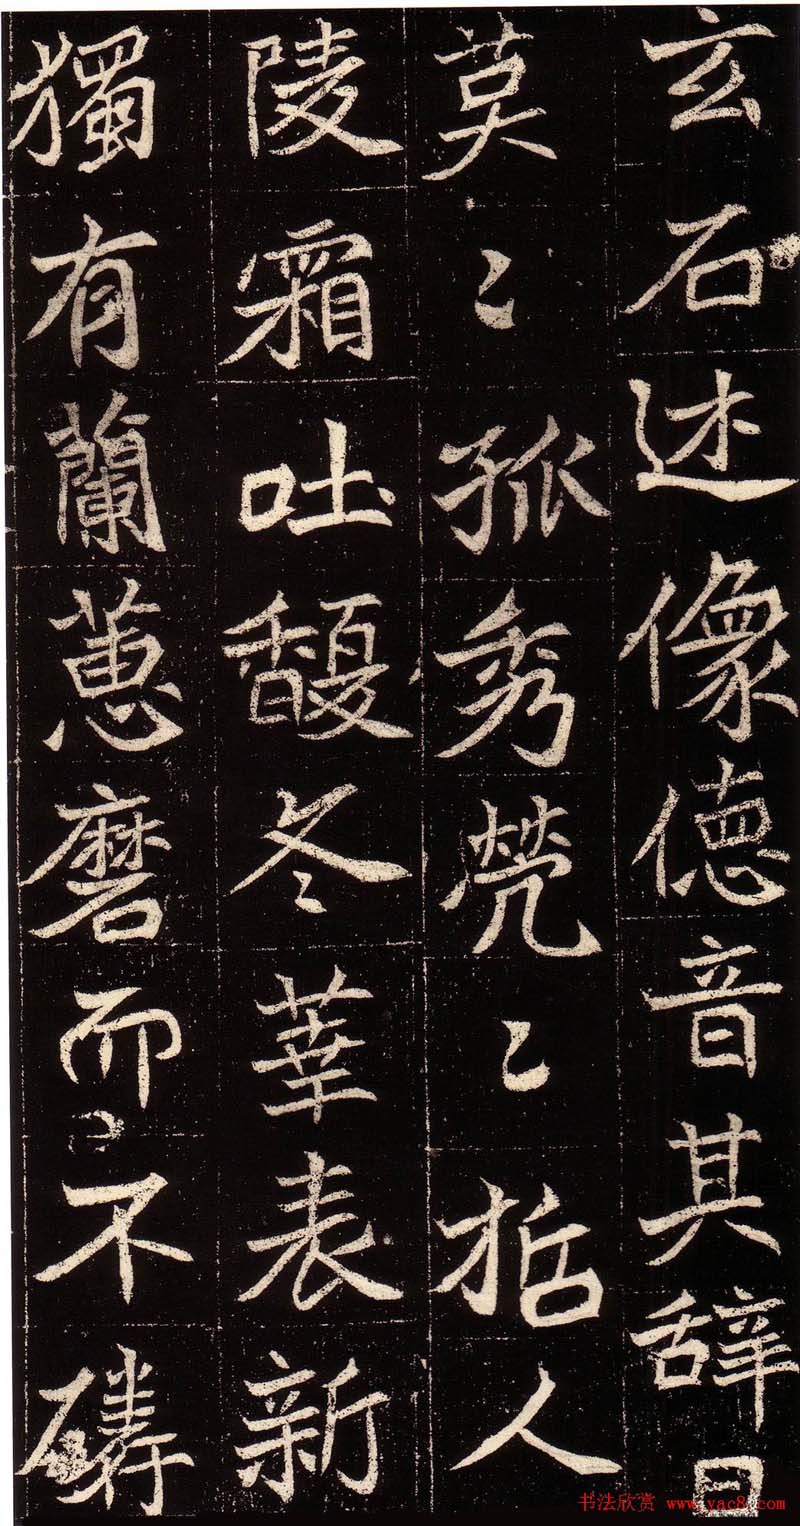 玄石述像德音其辝曰
英〻孤秀煢〻哲人
陵霜吐馥冬華表新
獨有蘭蕙磨而不磷
书法欣赏 www.yac8.com